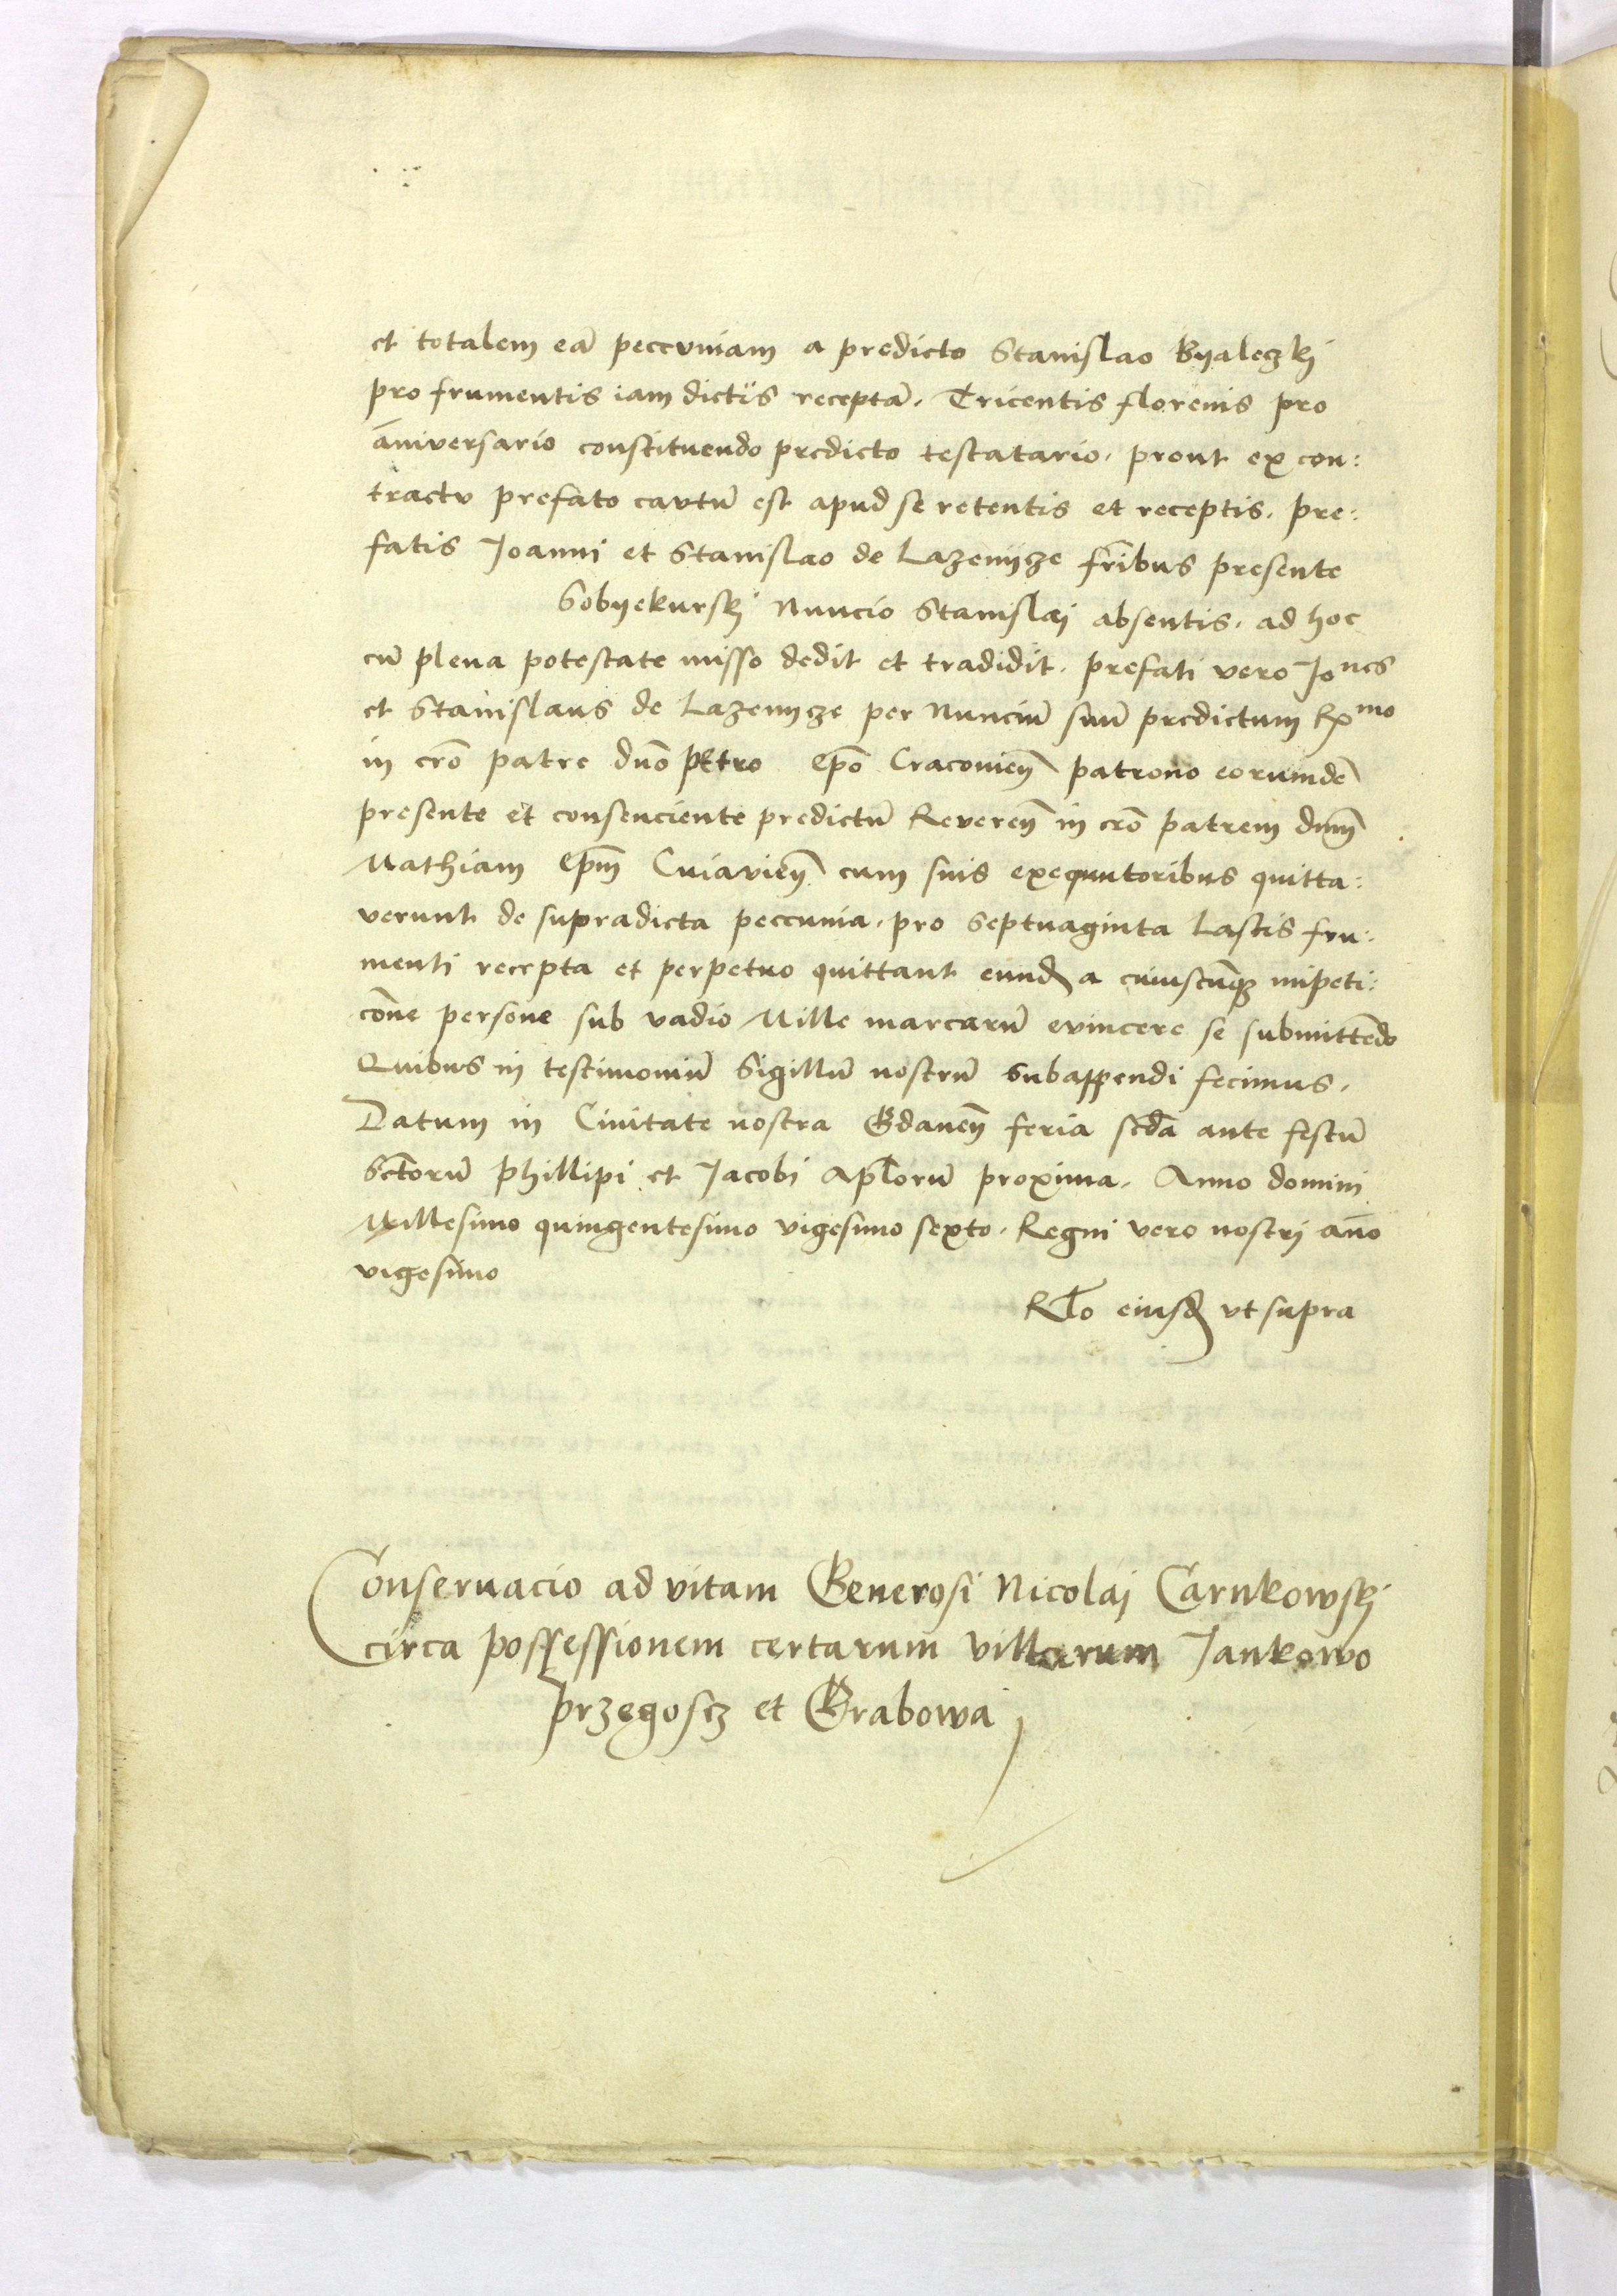 et totalem eā peccuniam a predicto Stanislao Byaleczkj
pro frumentis iam dictis receptā. Tricentis florenis pro
āniversario constituendo predicto testatario, prout ex con:
tractv prefato cavtū est apud se retentis et receptis, pre:
fatis Joanni et Stanislao de Lazenycze fr̄ibus presente
Sobyekurskj Nuncio Stanislaj absentis, ad hoc
cū plena potestate misso dedit et tradidit. prefati vero Jones
et Stanislaus de Lazenycze per Nunciū suū predictum Rxmo
in cr̄o patre dn̄o Petro Ep̄o Cracovieñ patrono eorumdē
presente et consenciente predictū Revereñ in cr̄o patrem dnm̄
Mathiam Ep̄m Cuiavieñ cum suis exequutoribus quitta:
verunt de supradicta peccunia, pro septuaginta Lastis fru:
menti recepta et perpetuo quittant eund̄ a cuiuscūq̄ impeti:
cōne persone sub vadio Mille marcarū evincere se submittēdo
Quibus in testimoniū Sigillū nostrū subappendi fecimus.
Datum in Civitate nostra Gdaneñ feria scd̄a ante festū
Sctōrū Phillipi et Jacobi Ap̄lorū proxima. Anno domini
Millesimo quingentesimo vigesimo sexto. Regni vero nostrj āno
vigesimo
Rl̄o eiusd̄ vt supra
Conseruacio ad vitam Generosi Nicolaj Carnkowskj
circa possessionem certarum villarum Jankowo
Przegoscz et Grabowa